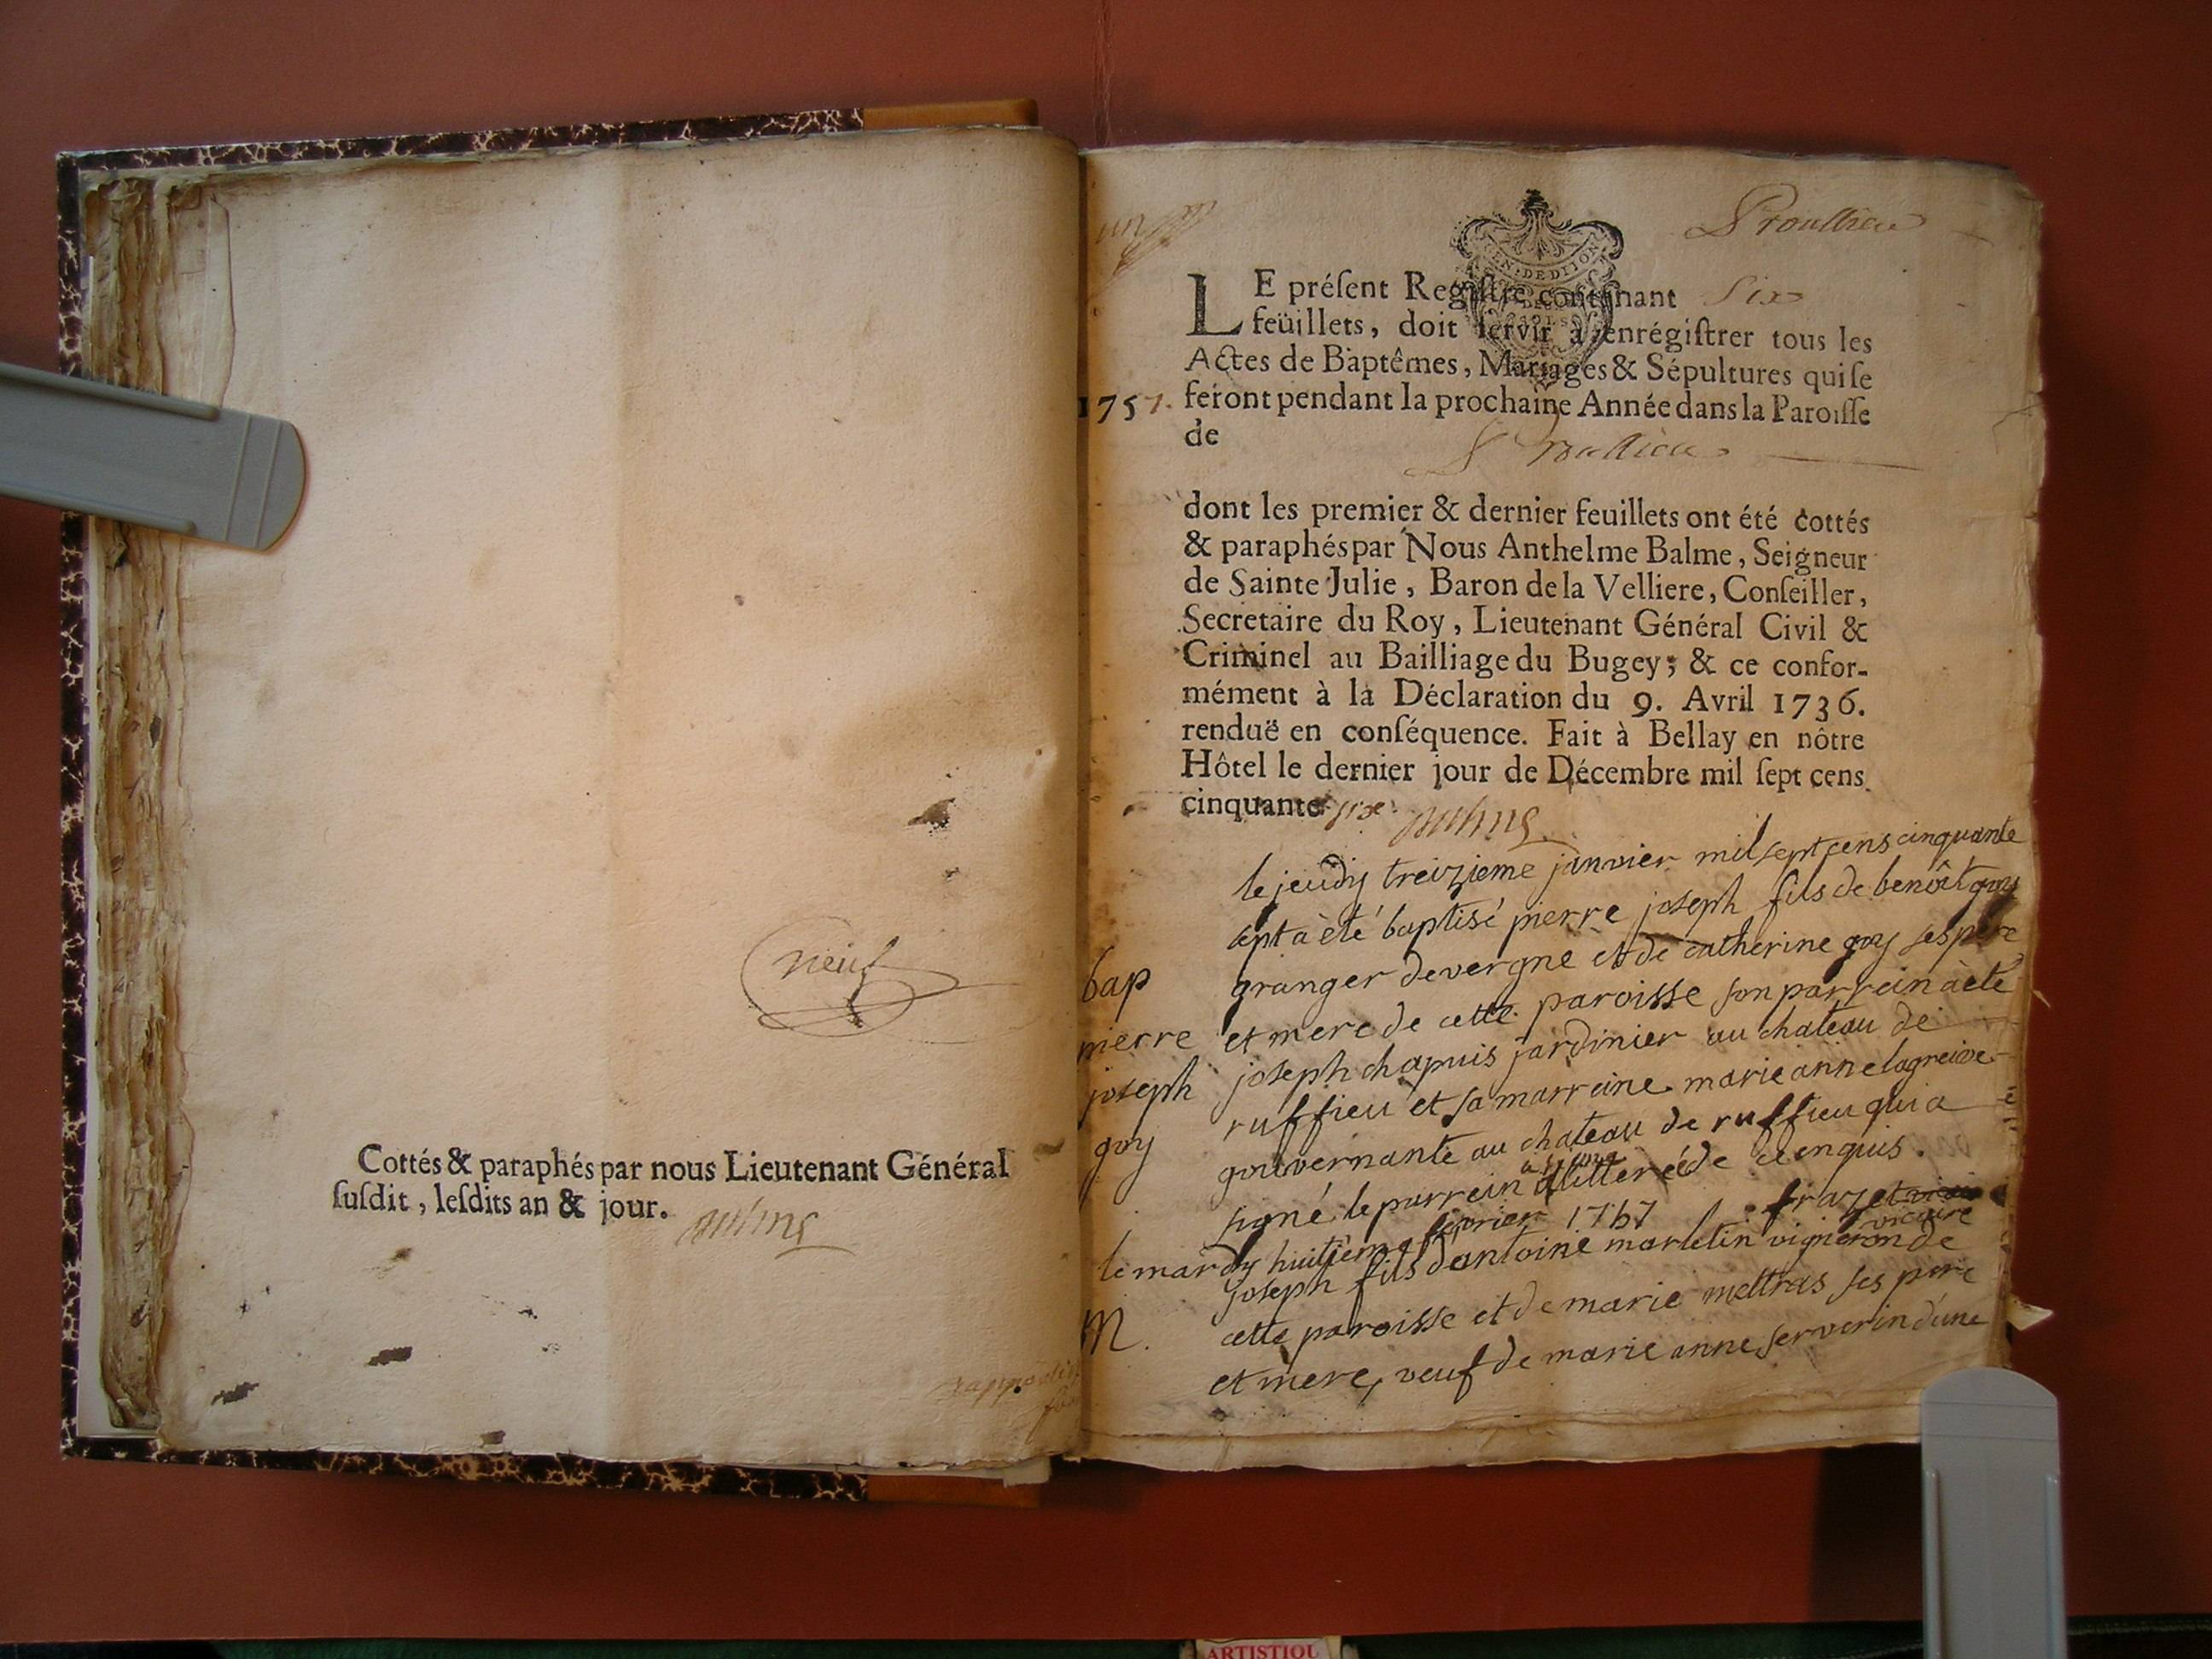 neuf
Cottés & paraphés par nous Lieutenant Général
ſuſdit, leſdits an & jour.
un
LE préſent Regiſtre contenant Six
feüillets, doit ſervir à enrégiſtrer tous les
Actes de Baptêmes, Mariages & Sépultures qui ſe
1757. feront pendant la prochaine Année dans la Paroiſſe
de
dont les premier & dernier feuillets ont été cottés
& paraphés par Nous Anthelme Balme, Seigneur
de Sainte Julie, Baron de la Velliere, Conſeiller,
Secretaire du Roy, Lieutenant Général Civil &
Criminel au Bailliage du Bugey; & ce confor-
mément à la Déclaration du 9. Avril 1736.
renduë en conſéquence. Fait à Bellay en nôtre
Hôtel le dernier jour de Décembre mil ſept cens
cinquante six
le jeudy treizieme janvier mil sept cens cinquante
sept a èté baptisé pierre joseph fils de benoît goy
bap granger de vergne et de catherine goy ses pere
pierre et mere de cette paroisse son parrein a èté
joseph joseph chapuis jardinier au chateau de
goy ruffieu et sa marreine marie anne lagreive
gouvernante au chateau de ruffieu qui a
signé le parrein illitteré de ce enquis.
frazet
vicaire
le mardy huitieme fevrier 1757
joseph fils d'antoine martetin vigneron de
M. cette paroisse et de marie mettras ses pere
et mere, veuf de marie anne serverin d'une
ARTISTIQU